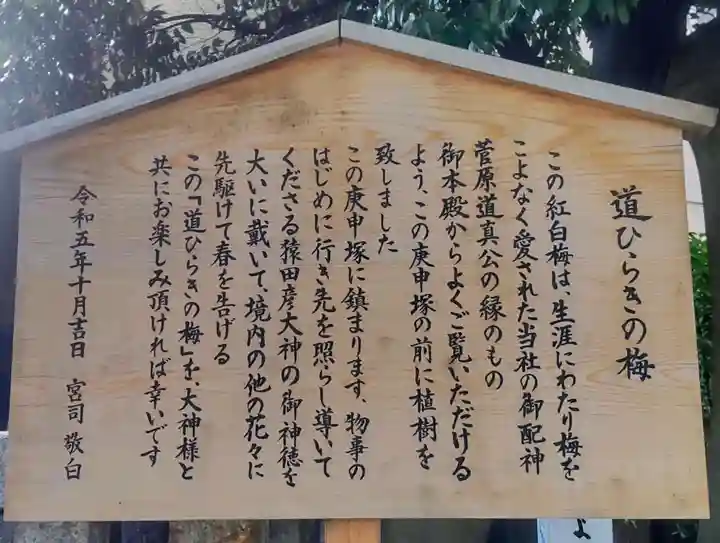 道ひらきの梅
この紅白梅は、生涯にわたり梅を
こよなく愛された当社の御配神
菅原道真公の縁のもの
御本殿からよくご覧いただける
よう、この庚申塚の前に植樹を
致しました
この庚申塚に鎮まります、物事の
はじめに行き先を照らし導いて
くださる猿田彦大神の御神徳を
大いに戴いて、境内の他の花々に
先駆けて春を告げる
この「道ひらきの梅」を、大神様と
共にお楽しみ頂ければ幸いです
令和五年十月吉日 宮司 敬白
よ